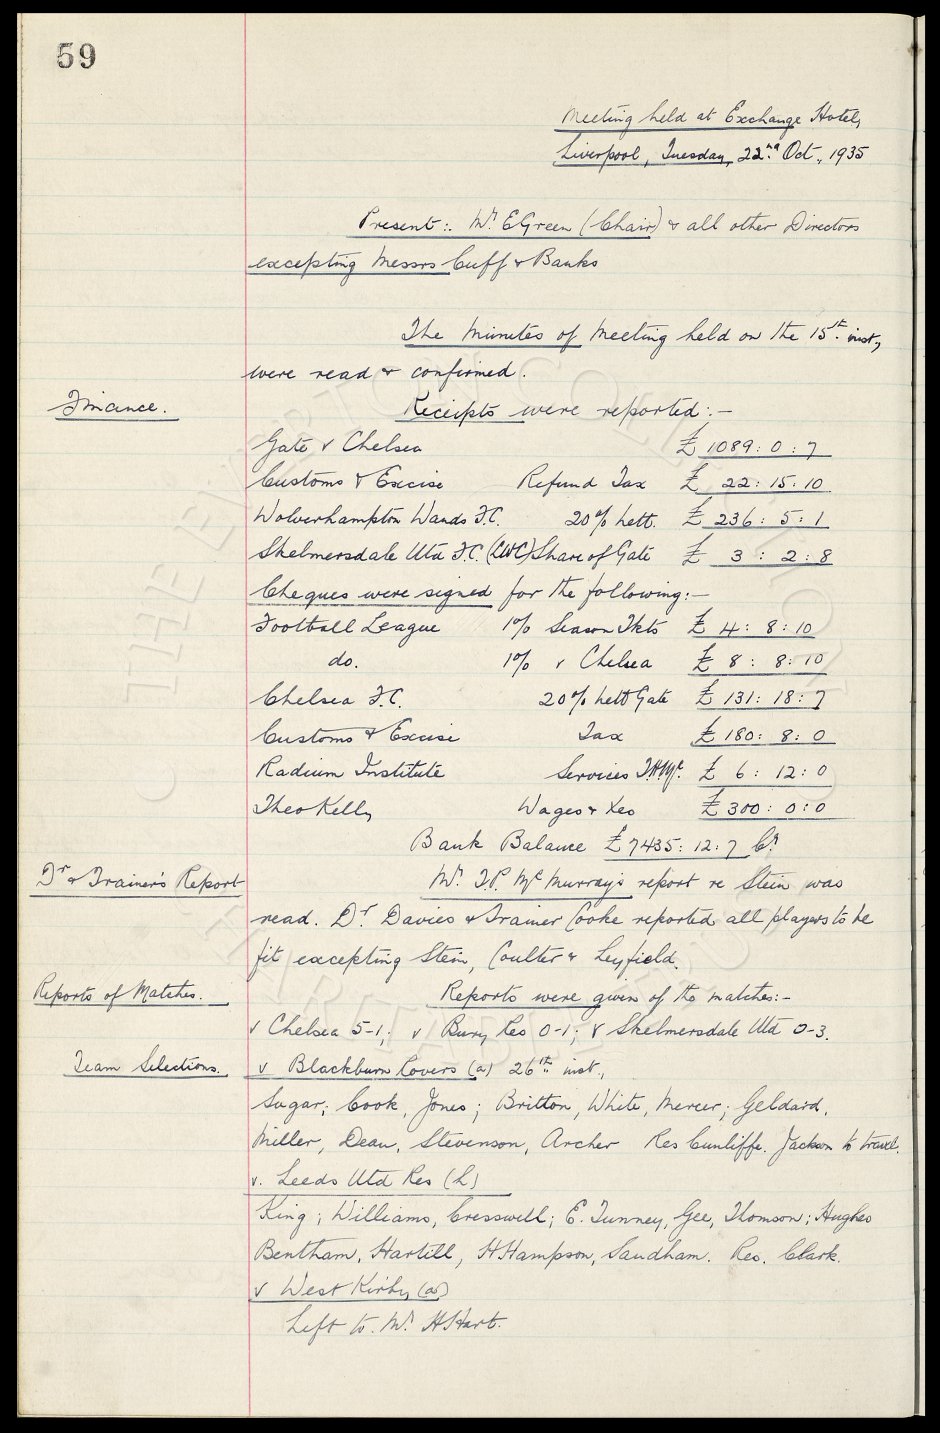 59
Meeting held at Exchange Hotel,
Liverpool, Tuesday, 22nd Oct., 1935
Present:. Mr. E Green (Chair) & all other Directors
excepting Messrs Cuff & Banks
The Minutes of Meeting held on the 15th. inst,
were read & confirmed.
Finance.
Receipts were reported:-
Gate v Chelsea £ 1089: 0 : 7
Customs & Excise Refund Tax £ 22: 15: 10
Wolverhampton Wands F.C. 20% nett. £ 236: 5: 1
Skelmersdale Utd F.C. (LWC) Share of Gate £ 3 : 2: 8
Cheques were signed for the following:-
Football League 1% Season Tkts £ 4: 8: 10
do. 1% v Chelsea £ 8: 8: 10
Chelsea F.C. 20% nett Gate £ 131: 18: 7
Customs & Excise Tax £ 180: 8: 0
Radium Institute Services £ 6: 12: 0
Theo Kelly Wages & Xes £ 300: 0: 0
Bank Balance £7435: 12: 7 Cr.
Dr & Trainer's Report
Mr. T.P. McMurray's report re Stein was
read. Dr. Davies & Trainer Cooke reported all players to be
fit excepting Stein, Coulter & Leyfield.
Reports of Matches.
Reports were given of the matches:-
v Chelsea 5-1; v Bury Res 0-1; v Skelmersdale Utd 0-3.
Team Selections.
v Blackburn Rovers (a) 26th inst.,
Sagar; Cook, Jones; Britton, White, Mercer; Geldard,
Miller, Dean, Stevenson, Archer Res Cunliffe. Jackson to travel.
v. Leeds Utd Res (L)
King; Williams, Cresswell; E. Tunney, Gee, Thomson; Hughes
Bentham, Hartill, H Hampson, Sandham. Res. Clark.
v West Kirby (a)
Left to. Mr. H Hart.
THE EVERTON COLLECTION
CHARITABLE TRUST